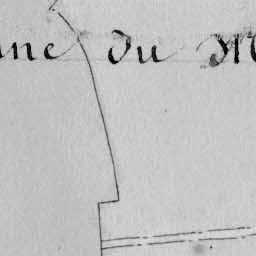 ne du M